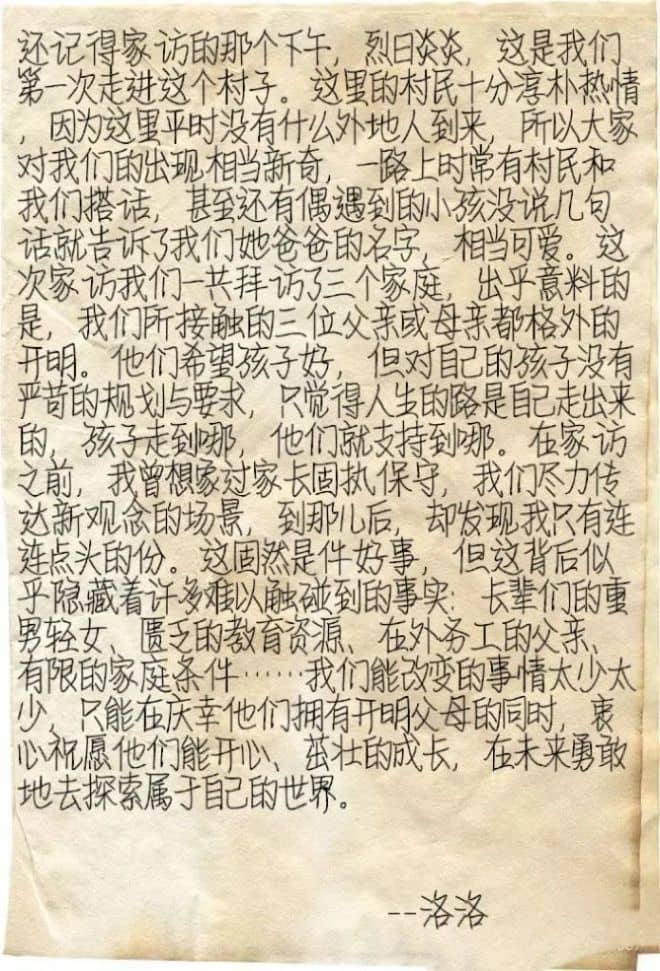 还记得家访的那个下午，烈日炎炎，这是我们
第一次走进这个村子。这里的村民十分淳朴热情
，因为这里平时没有什么外地人到来，所以大家
对我们的出现相当新奇，一路上时常有村民和
我们搭话，甚至还有偶遇到的小孩没说几句
话就告诉了我们她爸爸的名字，相当可爱。这
次家访我们一共拜访了三个家庭，出乎意料的
是，我们所接触的三位父亲或母亲都格外的
开明。他们希望孩子好，但对自己的孩子没有
严苛的规划与要求，只觉得人生的路是自己走出来
的，孩子走到哪，他们就支持到哪。在家访
之前，我曾想象过家长固执保守，我们尽力传
达新观念的场景，到那儿后，却发现我只有连
连点头的份。这固然是件好事，但这背后似
乎隐藏着许多难以触碰到的事实：长辈们的重
男轻女、匮乏的教育资源、在外务工的父亲、
有限的家庭条件……我们能改变的事情太少太
少，只能在庆幸他们拥有开明父母的同时，衷
心祝愿他们能开心、茁壮的成长，在未来勇敢
地去探索属于自己的世界。
--洛洛